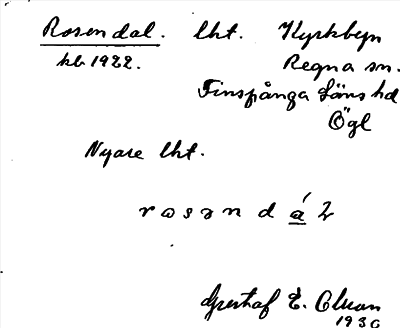 Rosendal. lht. Kyrkbyn
kb 1922. Regna sn.
Finspånga läns hd
Ögl
Nyare lht.
Gustaf E.
1930